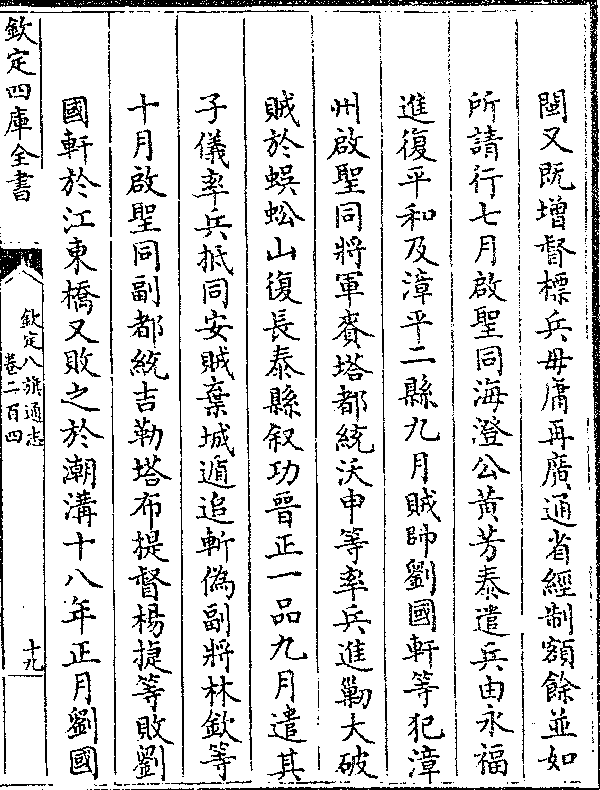 閩又既増督標兵毋庸再廣通省經制額餘並如
所請行七月啟聖同海澄公黄芳泰遣兵由永福
進復平和及漳平二縣九月賊帥劉國軒等犯漳
州啟聖同將軍賚塔都統沃申等率兵進勦大破
賊於蜈蚣山復長泰縣叙功晉正一品九月遣其
子儀率兵抵同安賊棄城遁追斬偽副將林欽等
十月啟聖同副都統吉勒塔布提督楊捷等敗劉
國軒於江東橋又敗之於潮溝十八年正月劉國
欽定四庫全書
欽定八旗通志
卷二百四
十九